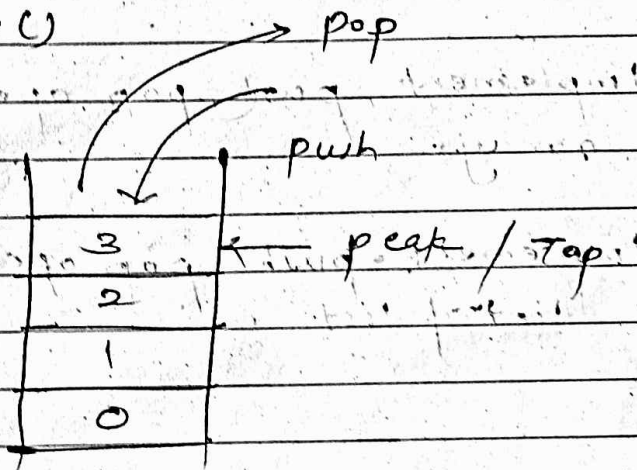 ()
pop
push
3 peak / Top
2
1
0